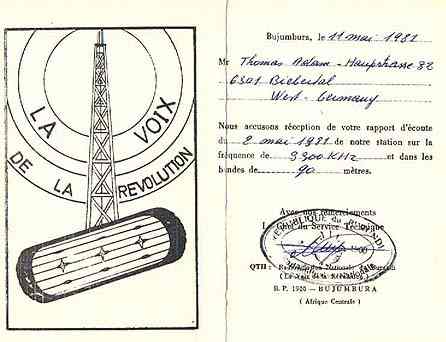 LA VOIX
DE LA REVOLUTION
Bujumbura, le 11 mai 1981
Mr Thomas Adam - Haupstrasse 82
6301 Biebertal
West-Germany
Nous accusons réception de votre rapport d'écoute
du 2 mai 1981 de notre station sur la
fréquence de 3300 KHz et dans les
bandes de 90 mètres.
Avec nos remerciements
Le Chef du Service Technique
REPUBLIQUE du BURUNDI
QTH : Nationale
(La Voix de la Révolution)
B. P. 1900 — BUJUMBURA
( Afrique Centrale )